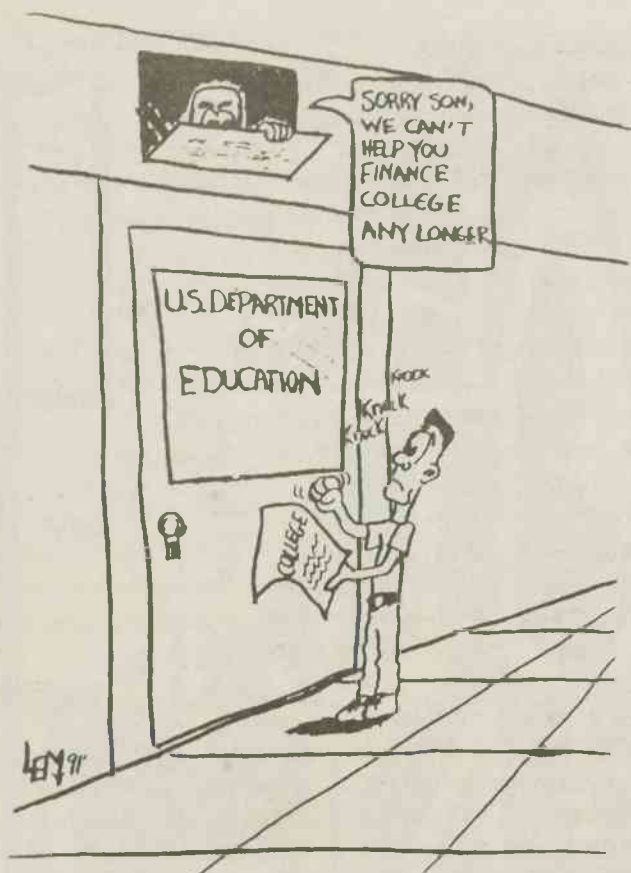 SORRY SON,
WE CAN'T
HELP YOU
FINANCE
COLLEGE
ANY LONGER
U.S. DEPARTMENT
OF
EDUCATION
Knock
Knock
COLLEGE